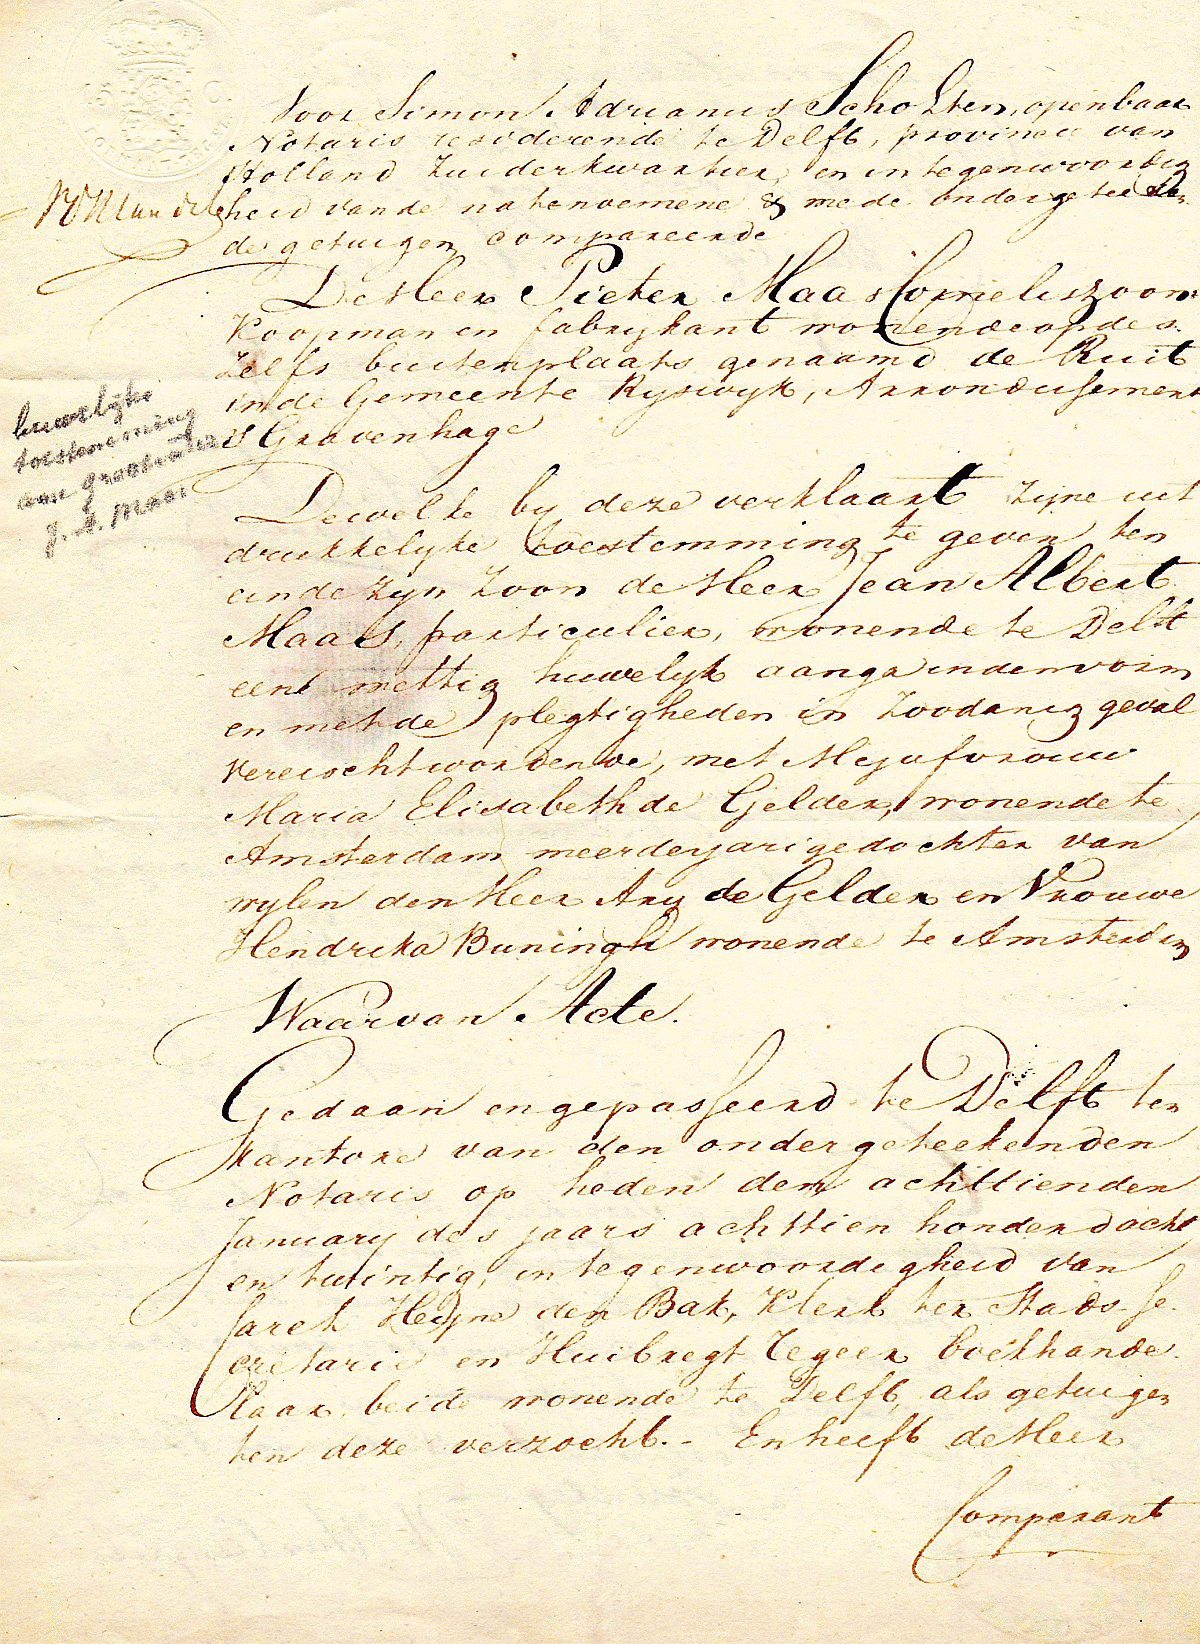 Voor Simon Adrianus Scholten, openbaar
Notaris resideerende te Delft, provincie van
Holland Zuiderkwartier, en in tegenwoordig
heid van de natenoemene & mede ondergeteeken
de getuigen compareerde
De Heer Pieter Maas Corneliszoon
Koopman en fabrykant wonende op des
zelfs buitenplaats genaamd de Ruit
in de Gemeente Ryswyk, Arrondissement
s Gravenhage
huwelijks
toestemming
aan grootvader
J. A. Maas
Dewelke by deze verklaart zyne uit
drukkelyke toestemming te geven ten
einde zyn zoon de Heer Jean Albert
Maas, particulier, wonende te Delft
een wettig huwelyk aanga in den vorm
en met de plegtigheden in zoodanig geval
vereischt wordende, met Mejufvrouw
Maria Elisabeth de Gelder, wonende te
Amsterdam meerderjarige dochter van
wylen den Heer Ary de Gelder en Vrouwe
Hendrika Buningh wonende te Amsterdam
Waarvan Acte.
Gedaan en gepasseerd te Delft ten
kantore van den ondergeteekenden
Notaris op heden den achttienden
January des jaars achttien honderd acht
en twintig, in tegenwoordigheid van
Jareh Heijne den Bak, Klerk ter Stads Se
cretarie en Huibregt Tegeer boekhande
laar, beide wonende te Delft, als getuigen
ten deze verzocht. - En heeft de Heer
Comparant